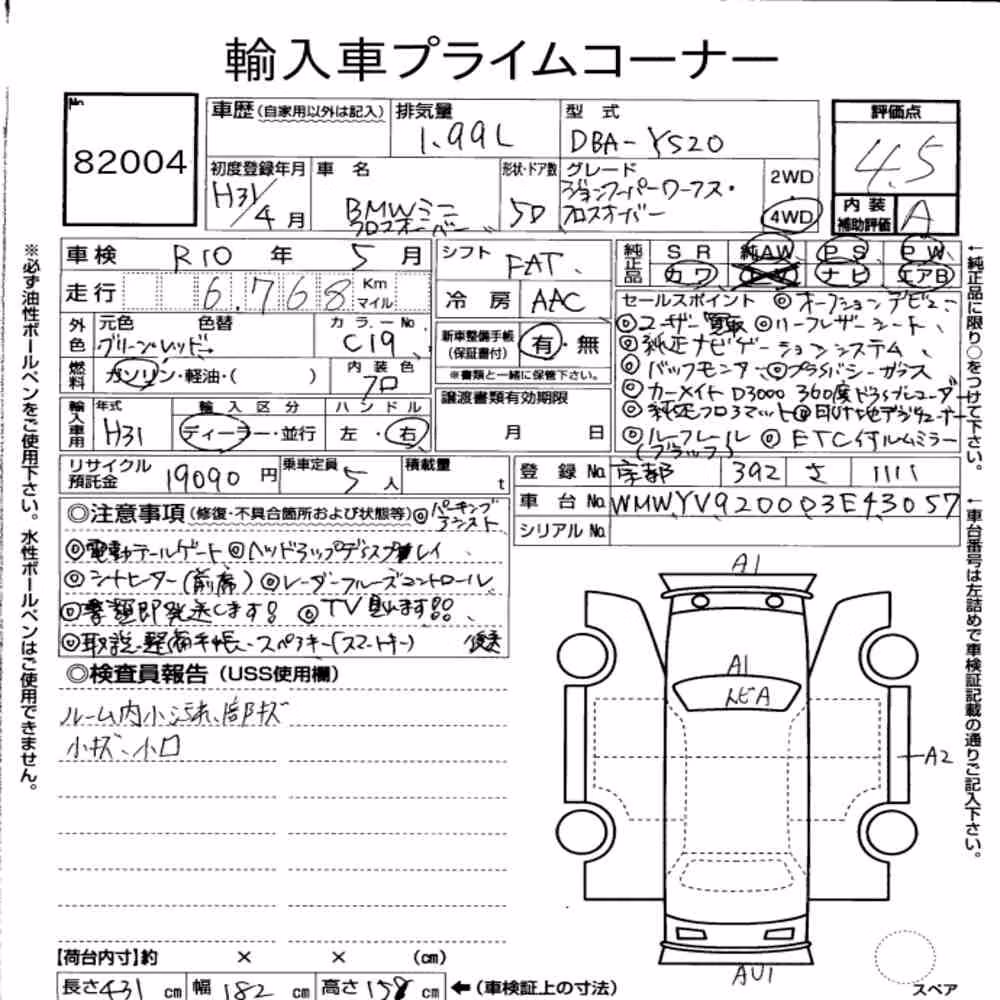 輸入車プライムコーナー
No.
82004
車歴(自家用以外は記入)
排気量
1.99L
型式
DBA-YS20
評価点
4.5
内装補助評価
A
初度登録年月
H31/4月
車名
BMWミニ
クロスオーバー
形状・ドア数
5D
グレード
ジョンクーパーワークス・
クロスオーバー
2WD
4WD
車検 R10年 5月
走行 6,768 Km マイル
シフト FAT.
冷房 AAC
純正品 SR 純AW PS PW
カワ ナビ エアB
外色 元色 色替
グリーン・レッド
カラーNo.
C19
燃料 ガソリン・軽油・( )
内装色
クロ
新車整備手帳(保証書付) 有・無
※書類と一緒に保管下さい。
輸入車用 年式 H31
輸入区分
ディーラー・並行
ハンドル
左・右
譲渡書類有効期限
月 日
セールスポイント ◎オープションデビュー
◎ユーザー買取 ◎ハーフレザーシート、
◎純正ナビゲーションシステム、
◎バックモニター ◎プライバシーガラス
◎カーメイトD3000 360度ドラブレコーダ
◎純正フロアマット ◎地デジチューナー
◎ルーフレール(ブラック) ◎ETC付ルムミラー
リサイクル預託金 19090円
乗車定員 5人
積載量 t
登録No. 宇部 392 さ 1111
車台No. WMWYV920003E43057
シリアルNo.
◎注意事項(修復・不具合箇所および状態等)◎パーキングアシスト
◎電動テールゲート◎ヘッドアップディスプレイ、
◎シートヒーター(前席) ◎レーダークルーズコントロール
◎書類即発送します! ◎TV見れます!!、
◎取説、整備手帳、スペアキー(スマートキー)
◎検査員報告(USS使用欄)
ルーム内小汚れ、
小キズ、小凹
A1
A1
トビA
A2
AU1
スペア
【荷台内寸】約 × × (cm)
長さ431cm 幅182cm 高さ158cm ←(車検証上の寸法)
※必ず油性ボールペンをご使用下さい。水性ボールペンはご使用できません。
←純正品に限り○をつけて下さい。
←車台番号は左詰めで車検証記載の通りご記入下さい。